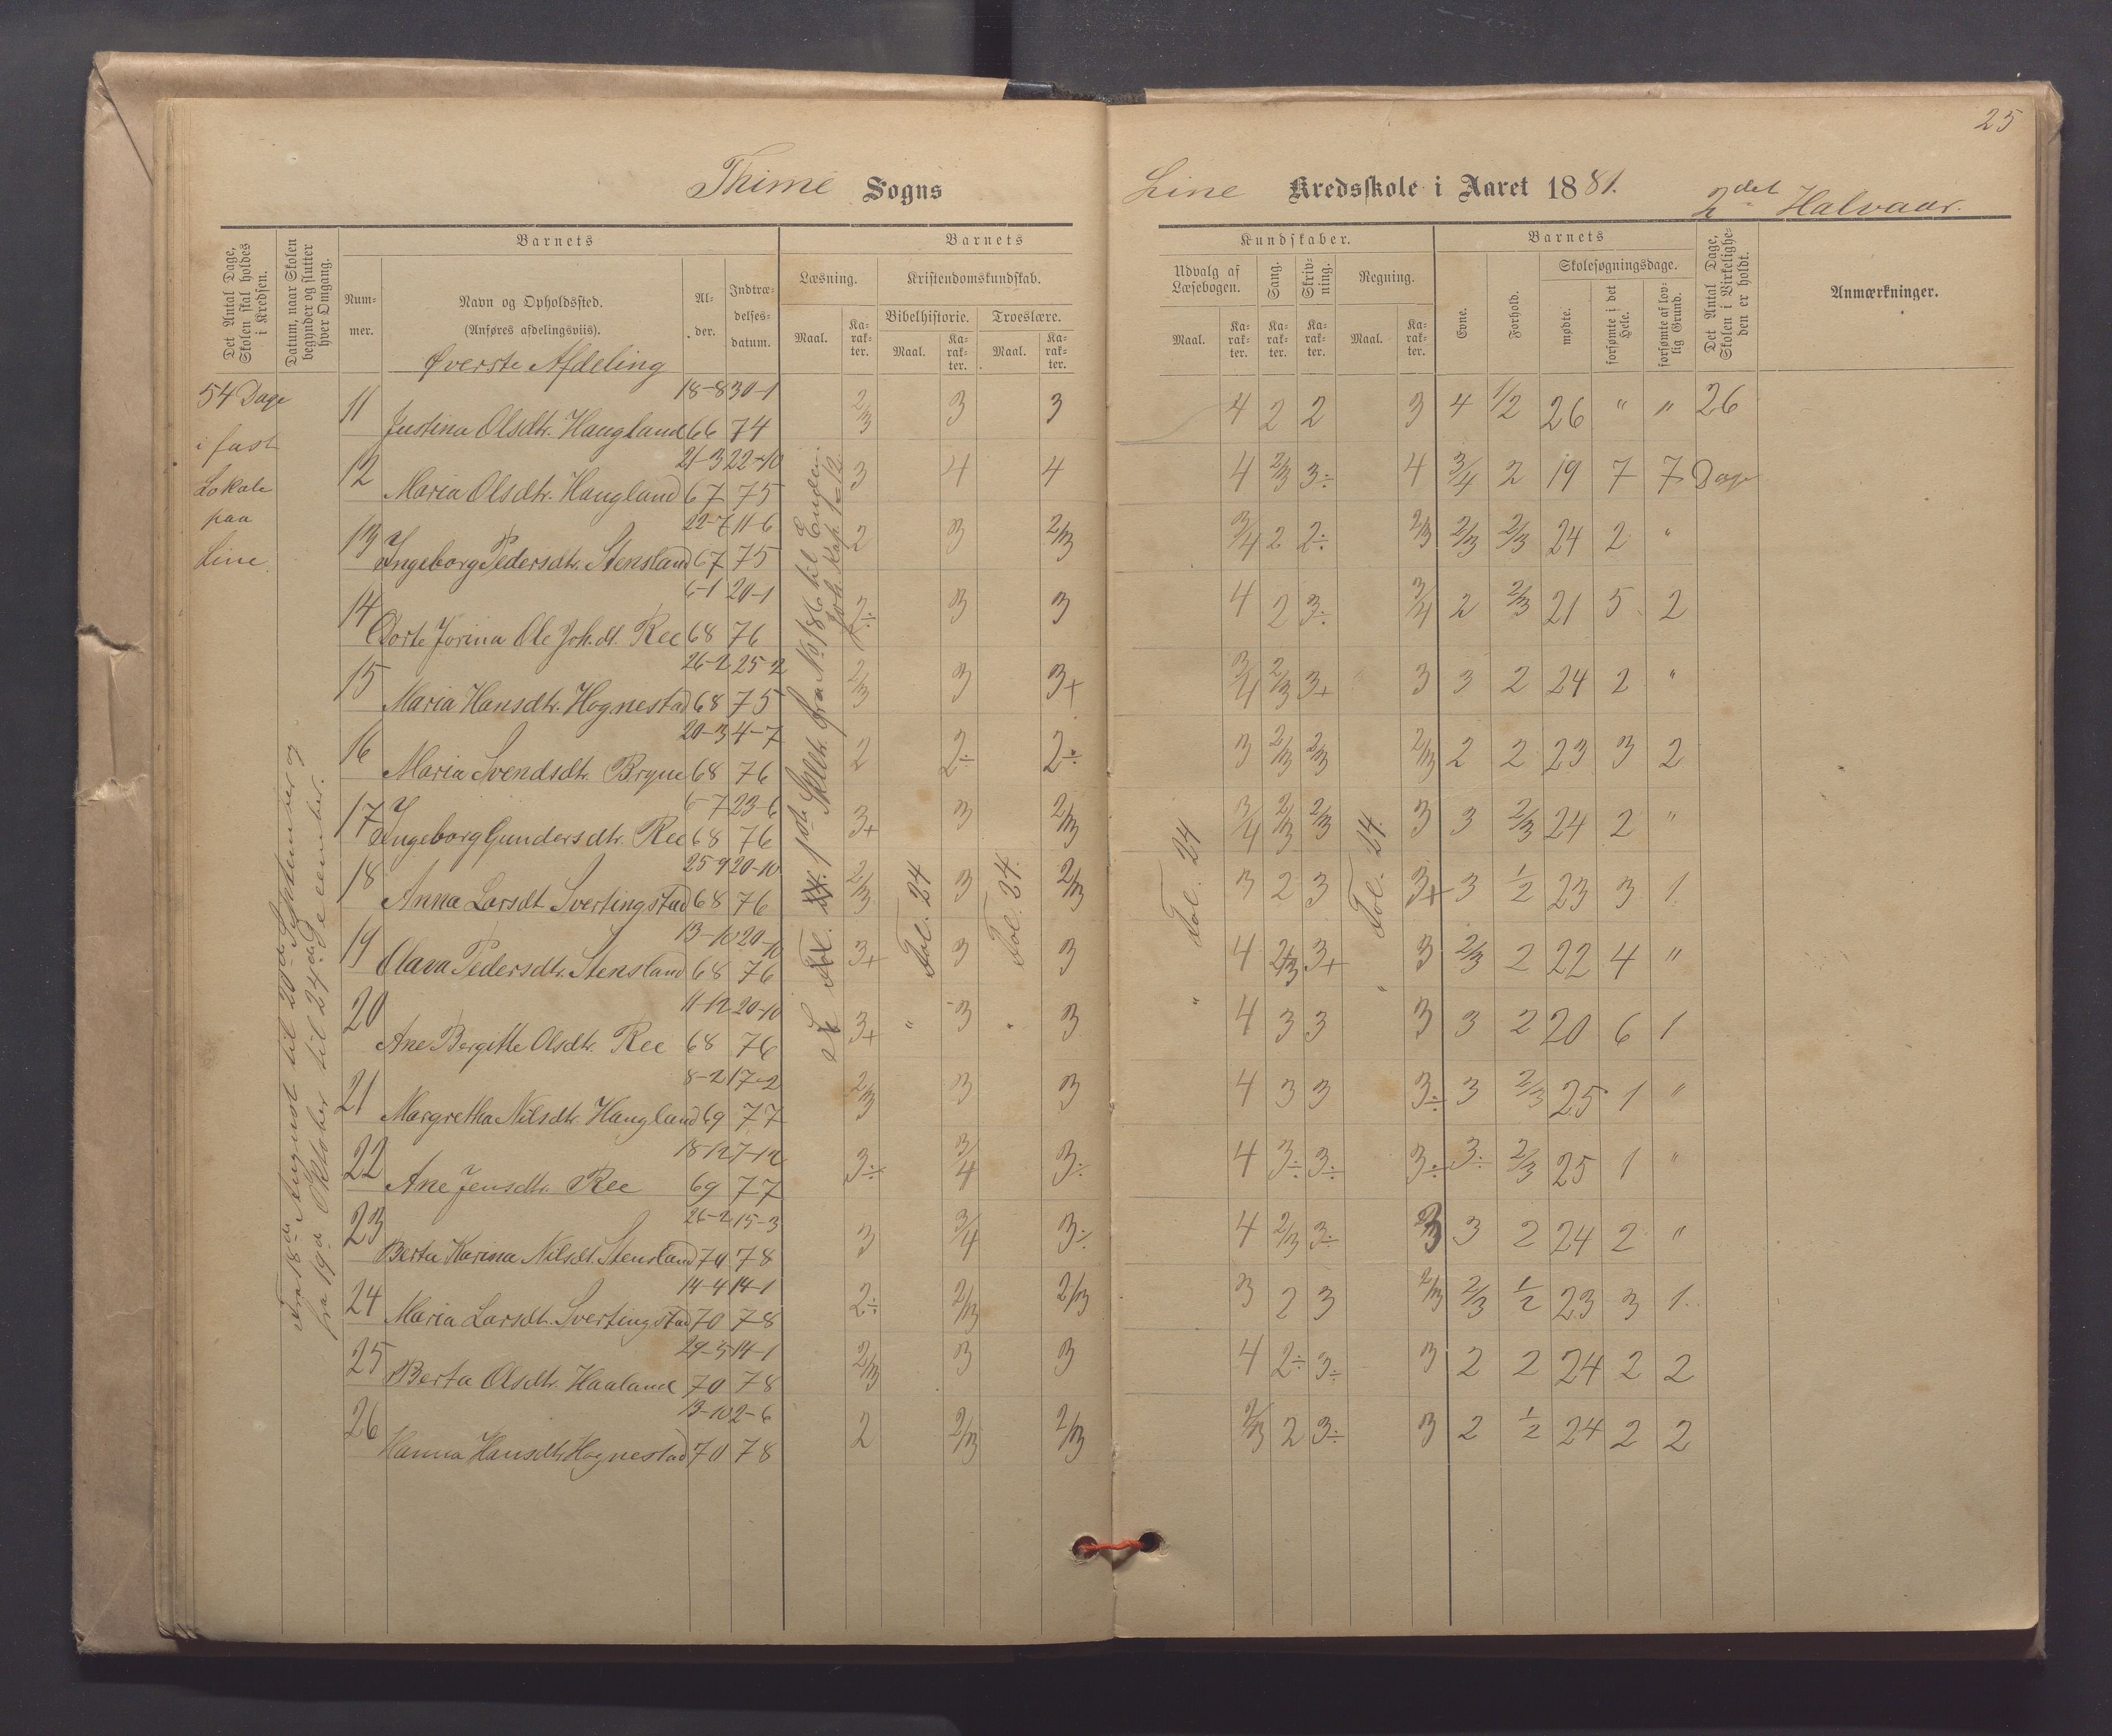 25
Thime Sogns
Line Kredsskole i Aaret 1881.
2det Halvaar.
Det Antal Dage, Skolen skal holdes i Kredsen.
Datum, naar Skolen begynder og slutter hver Omgang.
Barnets
Num-mer.
Navn og Opholdssted.
(Anføres afdelingsviis).
Øverste Afdeling
Al-der.
Indtræ-delses-datum.
Barnets
Læsning.
Maal.
Ka-rak-ter.
Kristendomskundskab.
Bibelhistorie.
Maal.
Ka-rak-ter.
Troeslære.
Maal.
Ka-rak-ter.
Kundskaber.
Udvalg af Læsebogen.
Maal.
Ka-rak-ter.
Sang.
Ka-rak-ter.
Skriv-ning.
Ka-rak-ter.
Regning.
Maal.
Ka-rak-ter.
Barnets
Evne.
Forhold.
Skolesøgningsdage.
mødte.
forsømte i det Hele.
forsømte af lov-lig Grund.
Det Antal Dage, Skolen i Virkelighe-den er holdt.
Anmærkninger.
54 Dage
i fast
Lokale
paa
Line.
Fra 18de August til 20de September og
fra 19de Oktober til 24de December.
1ste Skldr. fra No 186 til Enden.
Joh. Kap. 1-12
Fol. 24
Fol. 24.
Fol. 24
Fol. 24.
26
Dage
11 Justina Olsdtr. Haugland 18-8 66 30-1 74 2/3 3 3 4 2 2 3 4 1/2 26 " "
12 Maria Olsdtr. Haugland 21-3 67 22-10 75 3 4 4 4 2/3 3÷ 4 3/4 2 19 7 7
13 Ingeborg Pedersdtr. Stensland 22-7 67 11-6 75 2 3 2/3 3/4 2 2÷ 2/3 2/3 2/3 24 2 "
14 Dorte Jorina Ole Joh.dt. Ree 6-1 68 20-1 76 2÷ 3 3 4 2 3÷ 3/4 2 2/3 21 5 2
15 Maria Hansdtr. Hognestad 26-2 68 25-2 75 2/3 3 3+ 3/4 2/3 3+ 3 3 2 24 2 "
16 Maria Svendsdtr. Bryne 20-3 68 4-7 76 2 2÷ 2÷ 3 2/3 2/3 2/3 2 2 23 3 2
17 Ingeborg Gundersdtr. Ree 6-7 68 23-6 76 3+ 3 2/3 3/4 2/3 2/3 3 3 2/3 24 2 "
18 Anna Larsdt. Svertingstad 25-9 68 20-10 76 2/3 3 2/3 3 2 3 3+ 3 1/2 23 3 1
19 Olava Pedersdtr. Stensland 13-10 68 20-10 76 3+ 3 3 4 2/3 3+ 3 2/3 2 22 4 "
20 Ane Bergitte Olsdtr. Ree 11-12 68 20-10 76 3+ " 3 " 3 4 3 3 3 3 2 20 6 1
21 Margretha Nilsdtr. Haugland 8-2 69 17-2 77 2/3 3 3 4 3 3 3÷ 3 2/3 25 1 "
22 Ane Jensdtr. Ree 18-12 69 7-12 77 3÷ 3/4 3÷ 4 3÷ 3÷ 3÷ 3÷ 2/3 25 1 "
23 Berta Karina Nilsdt. Stensland 26-2 70 15-3 78 3 3/4 3÷ 4 2/3 3÷ 3 3 2 24 2 "
24 Maria Larsdt. Svertingstad 14-4 70 14-1 78 2÷ 2/3 2/3 3 2 3 2/3 2/3 1/2 23 3 1
25 Berta Olsdtr. Haaland 29-5 70 14-1 78 2/3 3 3 4 2÷ 3÷ 3 2 2 24 2 2
26 Hanna Hansdtr. Hognestad 13-10 70 2-6 78 2 2/3 2/3 2/3 2 3÷ 3 2 1/2 24 2 2